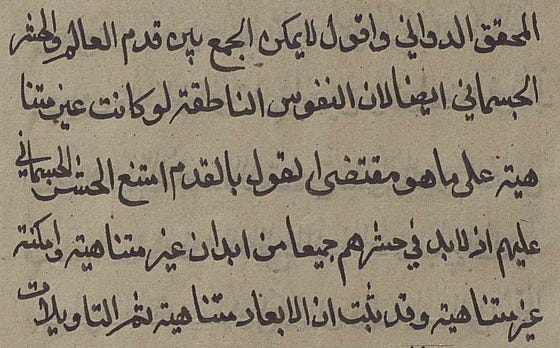 المحقق الدواني واقول لا يمكن الجمع بين قدم العالم والحشر
الجسماني ايضا لان النفوس الناطقة لو كانت غير متنا
هية على ما هو مقتضى القول بالقدم امتنع الحشر الجسماني
عليهم اذ لابد في حشرهم جميعا من ابدان غير متناهية وامكنة
غير متناهية وقد ثبت ان الابعاد متناهية ثم التاويلات